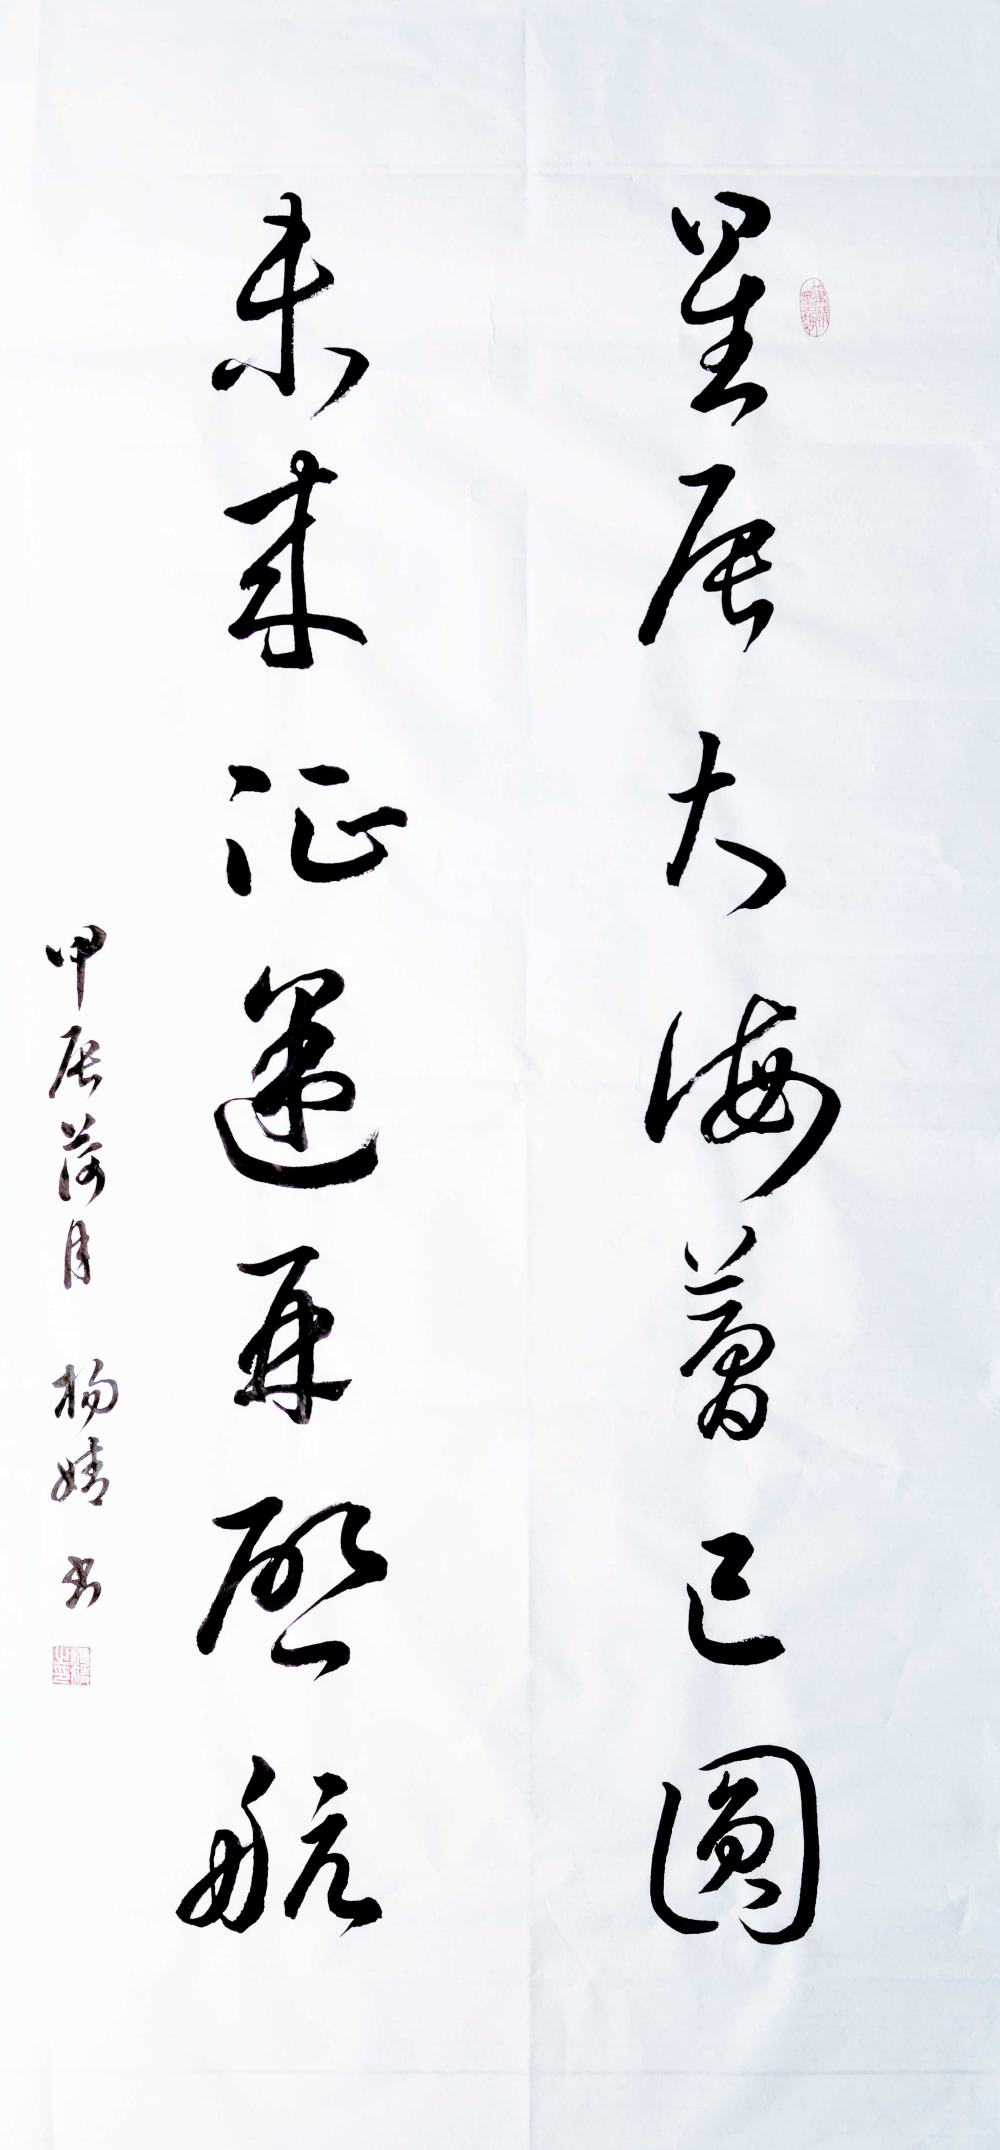 星辰大海夢已圓
未来征途再啟航
甲辰荷月 杨婧 书